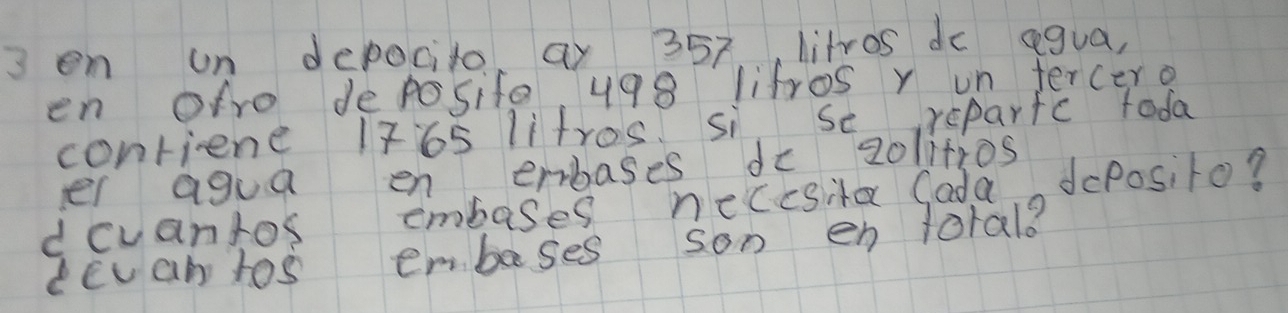 3 en un depocito ay 357 litros de agua,
en otro deposito 498 litros y un tercero
contiene 1765 litros. si se reparte toda
el agua en embases de 20 litros
¿cuantos embases necesita cada deposito?
¿cuantos embases son en total?